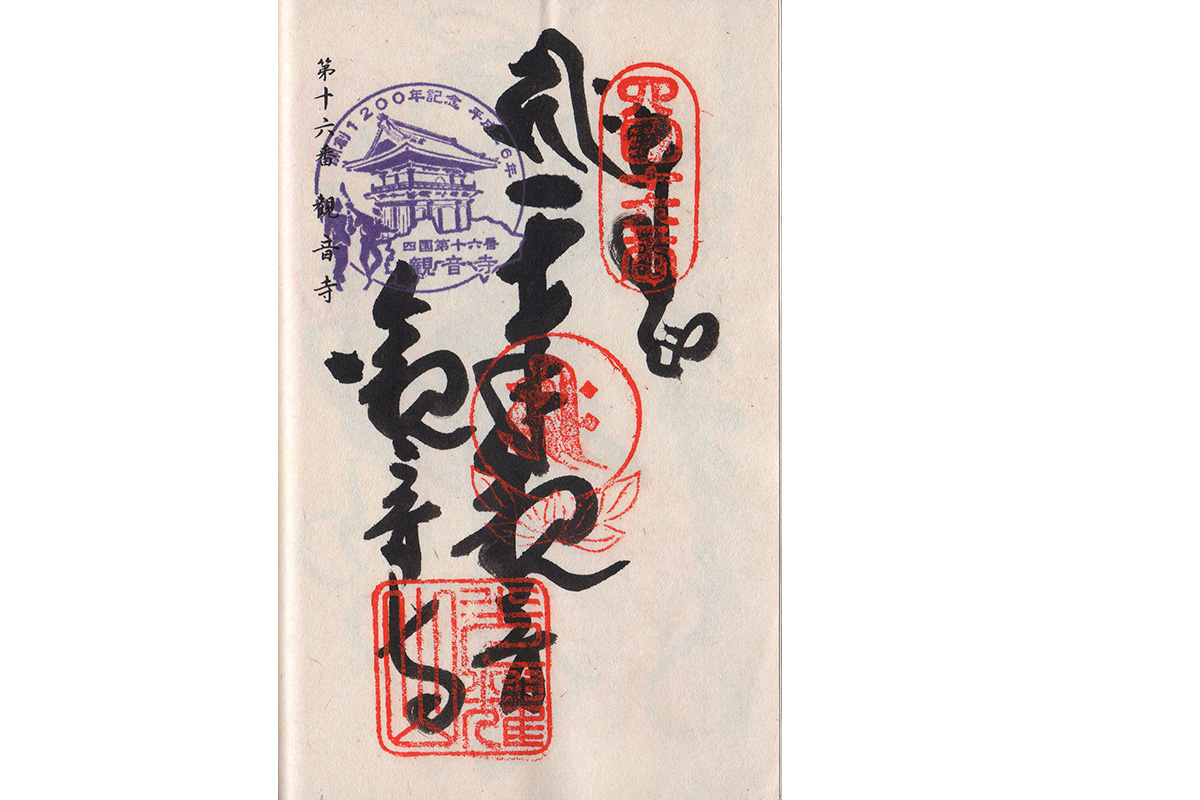 奉納
四国十六番
千手観音
観音寺
開創1200年記念 平成26年
四国第十六番
観音寺
第十六番 観音寺